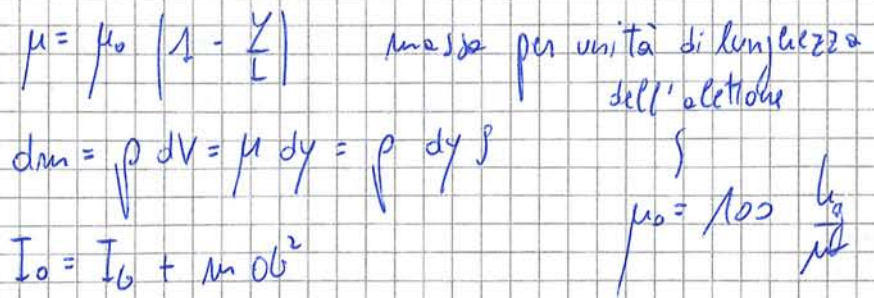 μ = μ₀ (1 - y/L) massa per unità di lunghezza
dell'alettone
dm = ρ dV = μ dy = ρ dy S
μ₀ = 100 kg/m
I₀ = I_G + m OG²